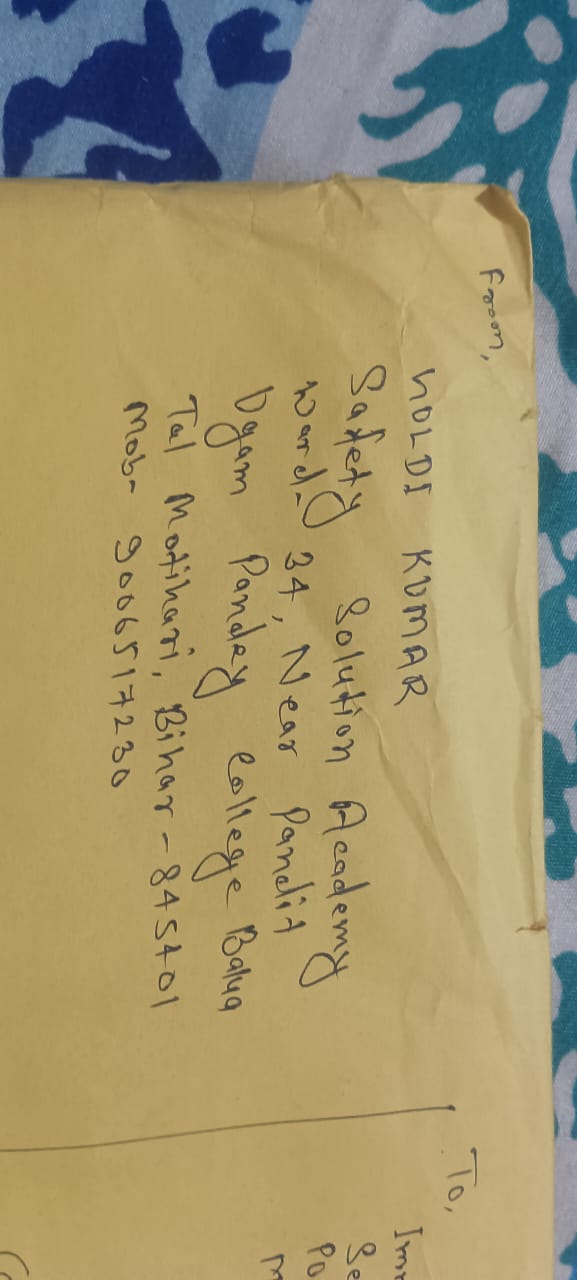 From,
HOLDI KUMAR
Safety Solution Academy
Ward-34, Near Pandit
Ugam Panday College Balua
Tal Motihari, Bihar-845401
Mob- 9006517230
To,